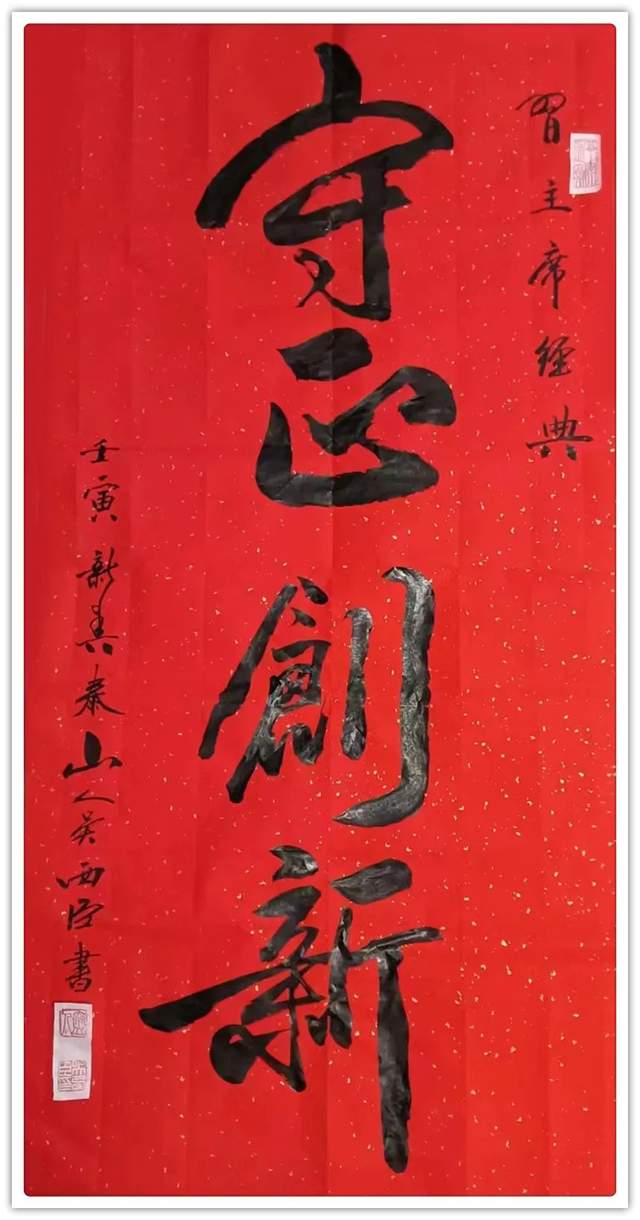 習主席經典
守正創新
壬寅新春泰山人吴西臣書